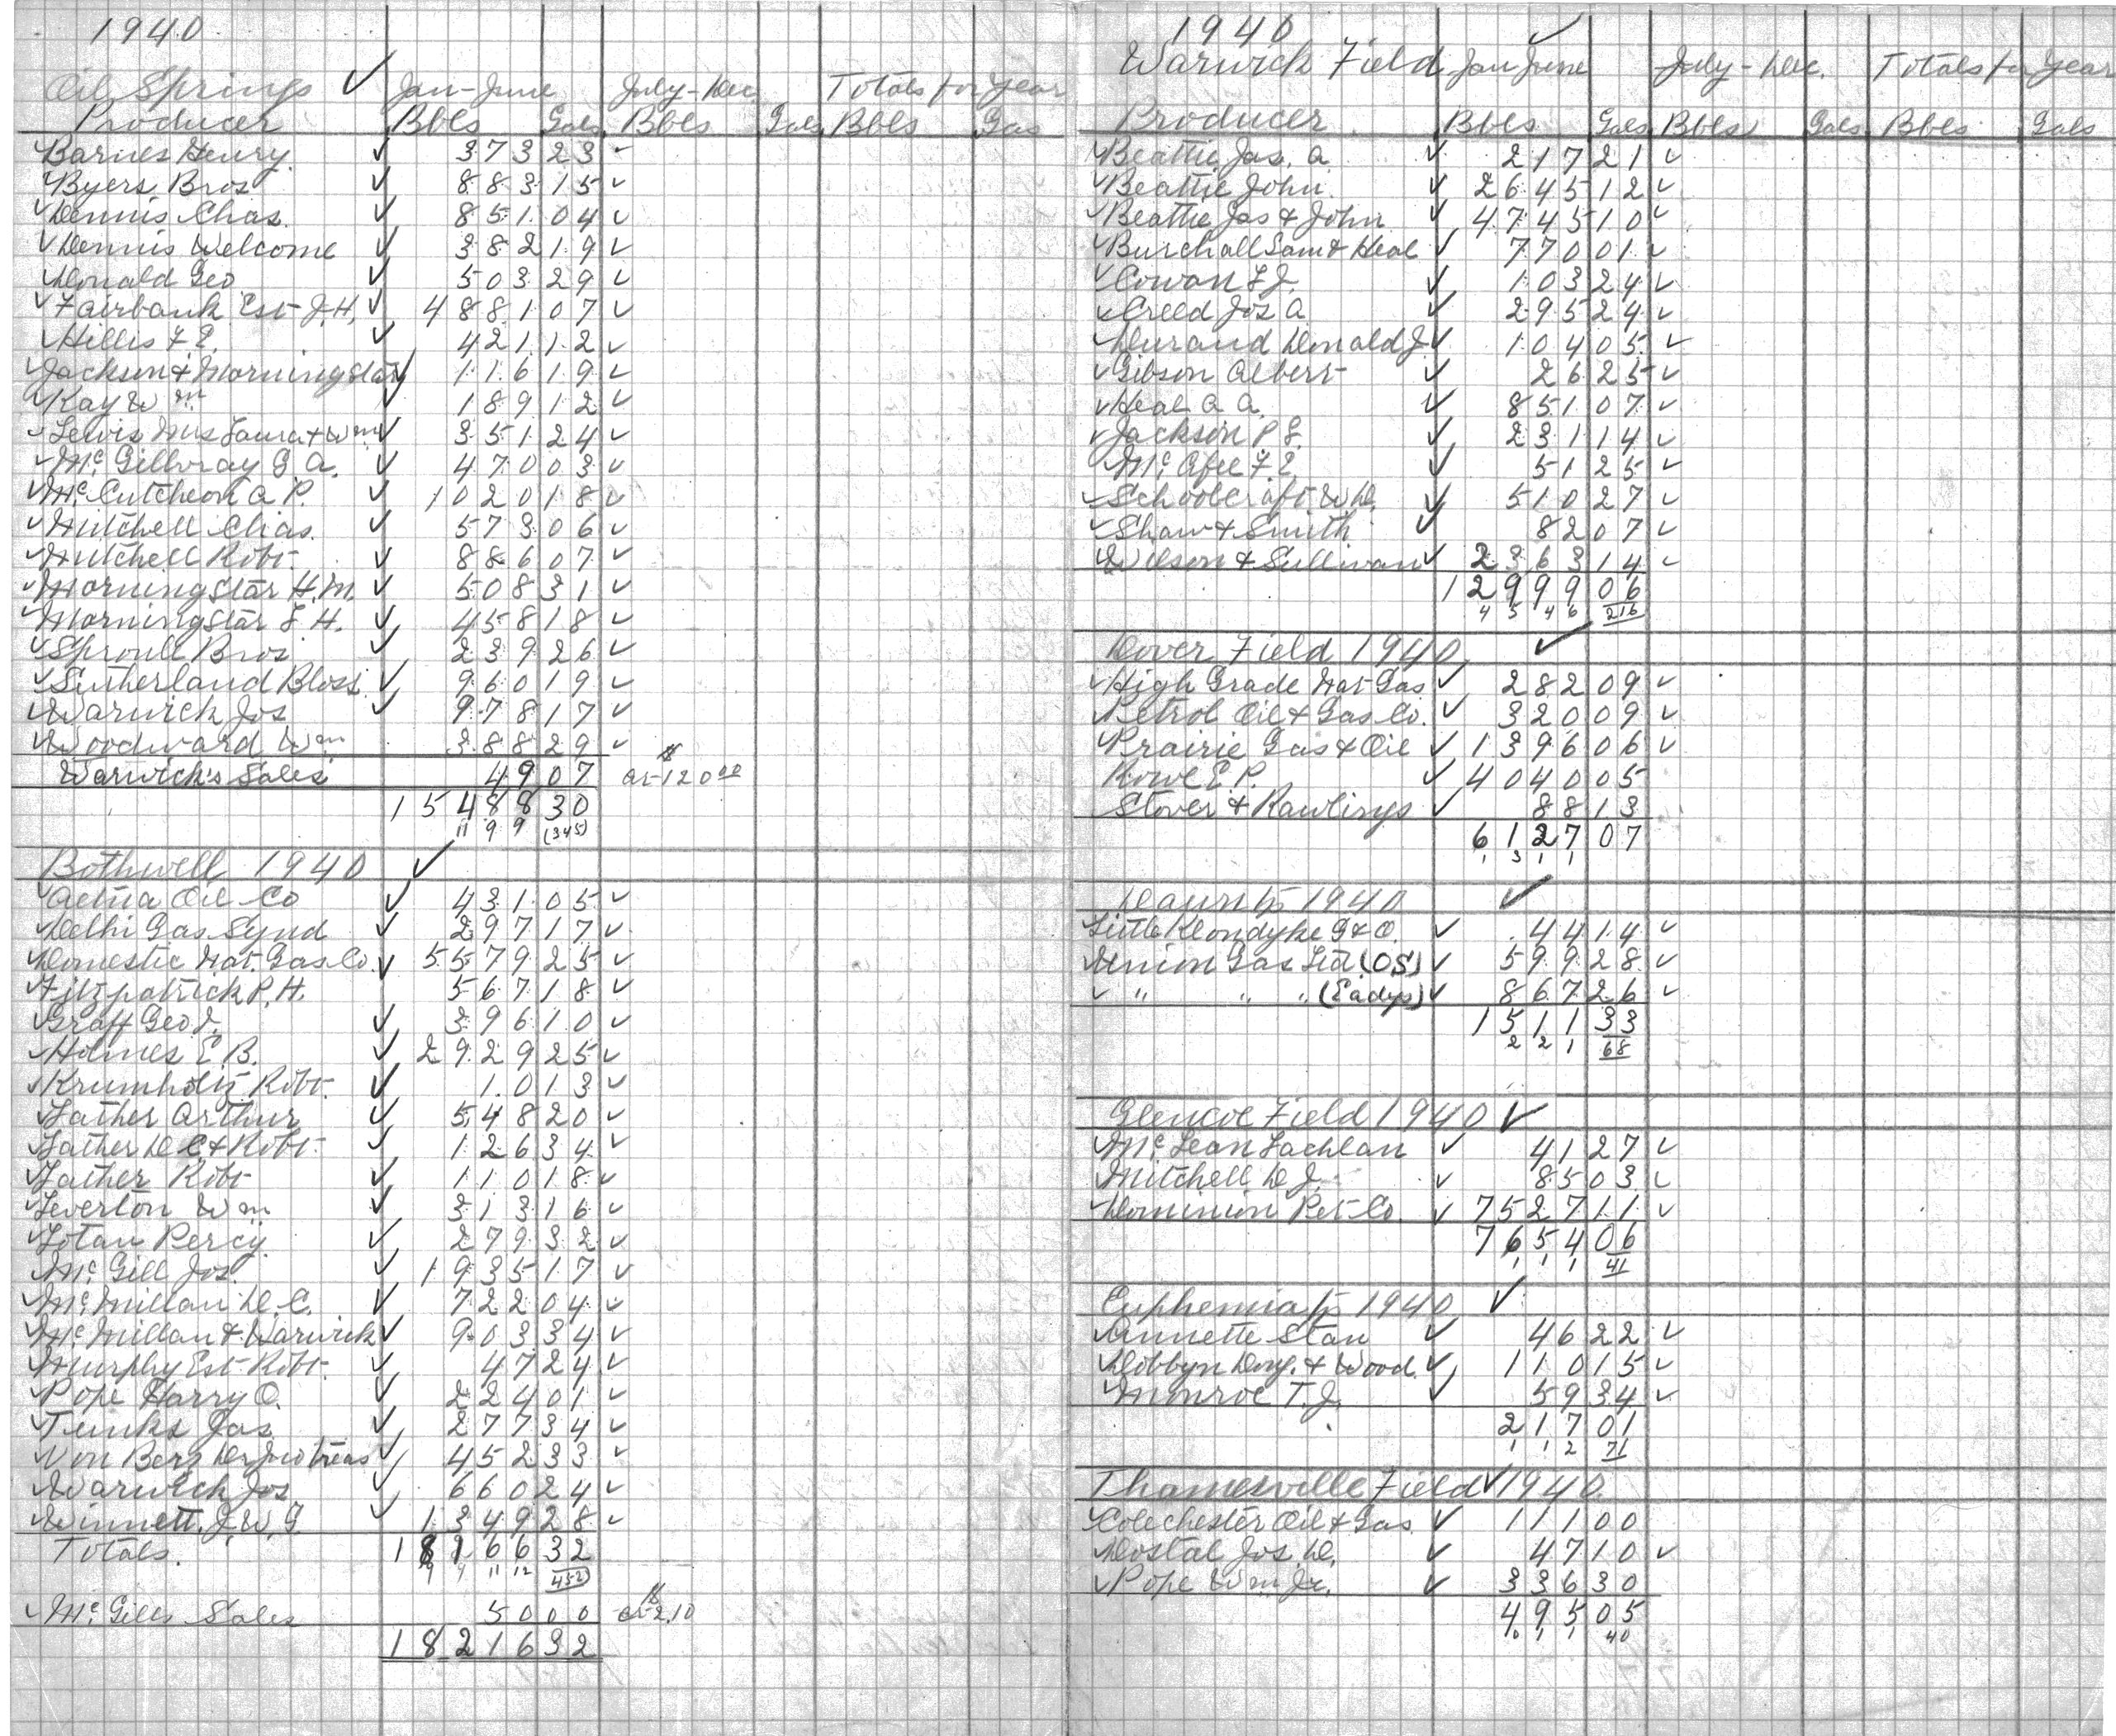 1940
Oil Springs ✓ Jan-June July-Dec. Totals for Year
Producer Bbls Gals Bbls Gals Bbls Gas
Barnes Henry. 373 23
Byers Bros 883 15
Dennis Chas. 851 04
Dennis Welcome 382 19
Donald Geo 503 29
Fairbank Est J.H. 4881 07
Hillis F E. 421 12
Jackson & Morningstar 116 19
Kay Wm 189 12
Lewis Mrs Laura & Wm 351 24
McGillvray G A. 470 03
McCutcheon A P. 1020 18
Mitchell Chas. 573 06
Mitchell Robt. 886 07
Morningstar H.M. 508 31
Morningstar L H. 458 18
Sproull Bros 239 26
Sutherland Bloss. 960 19
Warwick Jos 978 17
Woodward Wm 388 29
Warwick's Sales 49 07 at $120 00
15488 30
11 9 9 (345)
Bothwell 1940 ✓
Aetna Oil Co 431 05
Delhi Gas Synd 297 17
Domestic Nat. Gas Co. 5579 25
Fitzpatrick P.H. 567 18
Graff Geo J. 396 10
Holmes E B. 2929 25
Krumholtz Robt. 10 13
Lather Arthur 548 20
Lather D C & Robt. 126 34
Lather Robt 110 18
Leverton Wm 313 16
Lotan Percy 279 32
McGill Jos. 1935 17
McMillan D.C. 722 04
McMillan & Warwick 903 34
Murphy Est Robt. 47 24
Pope Harry O. 224 01
Tunks Jas. 277 34
Von Berg 452 33
Warwick Jos 660 24
Winnett. J.W.G. 1349 28
Totals. 18166 32
11 12 (452)
McGills Sales 50 00 at $2.10
18216 32
1940
Warwick Field Jan June July - Dec. Totals for Year
Producer Bbls Gals Bbls Gals Bbls Gals
Beattie Jas. A 217 21
Beattie John 2645 12
Beattie Jas & John 4745 10
Burchall Sam & Heal 770 01
Cowan F J. 103 24
Creed Jos A 295 24
Durand Donald J 104 05
Gibson Albert 26 25
Heal A A. 851 07
Jackson P S. 231 14
McAfee F E. 51 25
Schoolcraft W D. 510 27
Shaw & Smith 82 07
Wilson & Sullivan 2363 14
12999 06
4 5 4 6 216
Dover Field 1940 ✓
High Grade Nat Gas 282 09
Petrol Oil & Gas Co. 320 09
Prairie Gas & Oil 1396 06
Rowe E P. 4040 05
Stover & Rawlings 88 13
6127 07
1 3 1 1
Dawn Tp 1940 ✓
Little Klondyke G & O. 44 14
Union Gas Ltd (OS) 599 28
" " " (Eadys) 867 26
1511 33
2 2 1 68
Glencoe Field 1940 ✓
McLean Lachlan 41 27
Mitchell D J. 85 03
Dominion Pet Co. 7527 11
7654 06
1 1 1 41
Euphemia Tp 1940 ✓
Annette Stan 46 22
Dobbyn Doug. & Wood. 110 15
Monroe T. J. 59 34
217 01
1 1 2 71
Thamesville Field ✓ 1940.
Colechester Oil & Gas. 111 00
Dostal Jos. D. 47 10
Pope Wm. Jr. 336 30
495 05
0 1 1 40